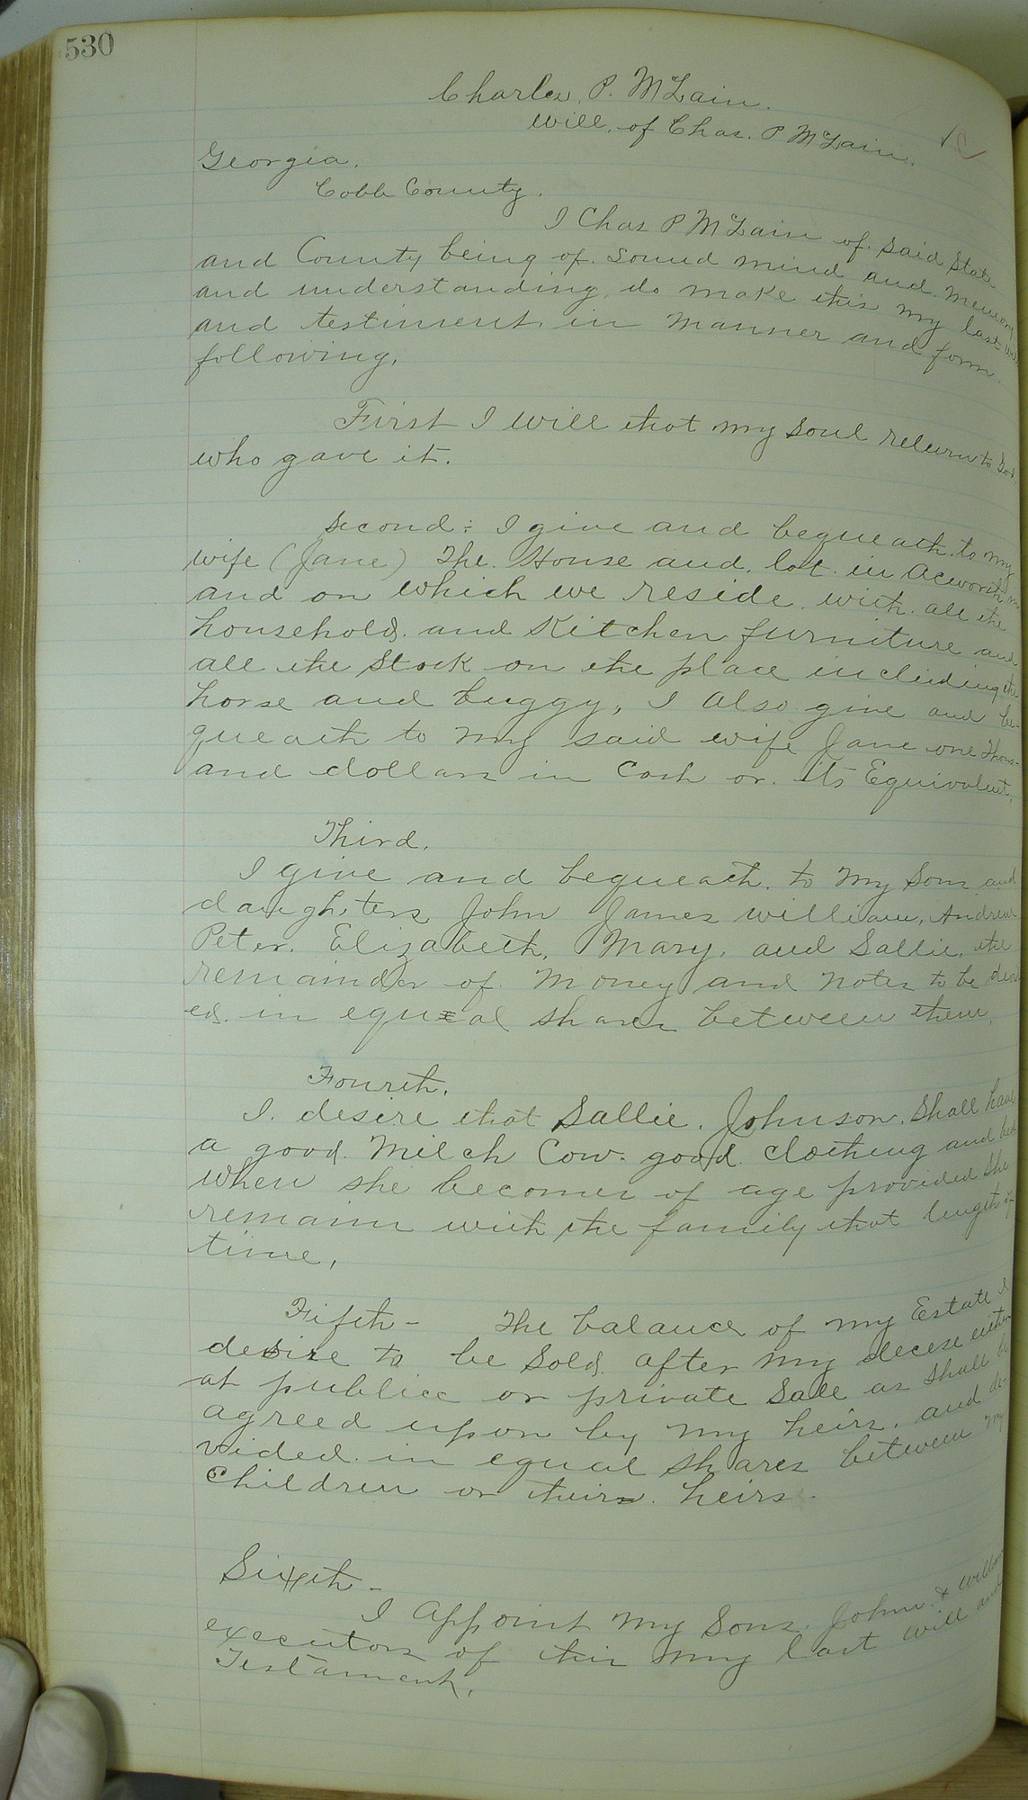 530
Charles. P. McLain.
Will. of Chas. P McLain.
Georgia.
Cobb County.
I Chas P McLain of. said State
and County being of. sound mind and Memory
and understanding, do make this my last will
and testiment in manner and form.
following.
First I will that my soul return to God
who gave it.
Second: I give and bequeath to my
wife (Jane) The. House and. lot. in Acworth
and on which we reside. with. all the
household. and Kitchen furniture and
all the Stock on the place including the
horse and buggy, I also give and be-
queath to my said wife Jane one thous-
and dollars in Cash or. its Equivalent,
Third.
I give and bequeath. to My Sons and
daughters John James William, Andrew
Peter. Elizabeth, Mary, and Sallie. the
remainder of. Money and notes to be divid
ed. in equal shares between them,
Fourth.
I. desire that Sallie. Johnson. Shall have
a good. Milch Cow. good. clothing and bed
when she becomes of age provided She
remains with the family that length of
time,
Fifth- The balance of my Estate I
desire to be Sold. after my decese either
at publice or private Sale as shall be
agreed upon by my heirs. and di-
vided. in equal shares between my
Children or their. heirs.
Sixth-
I appoint my Sons. John. & William
executors of this my last will and
Testament.